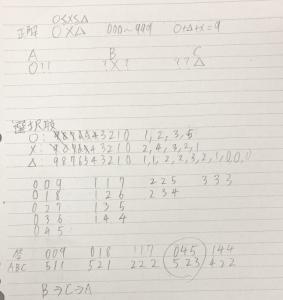 O≦X≦△
正解 O X △ 000~999 O+△+X=9
A B C
O!! ?X? ??△
選択肢
O: 9876543210 1, 2, 3, 5
X: 9876543210 2, 4, 3, 2, 1
△: 9876543210 1, 1, 2, 2, 3, 2, 1, 0, 0, 1
009 117 225 333
018 126 234
027 135
036 144
045
答 009 018 117 045 144
ABC 511 521 222 523 422
B→C→A